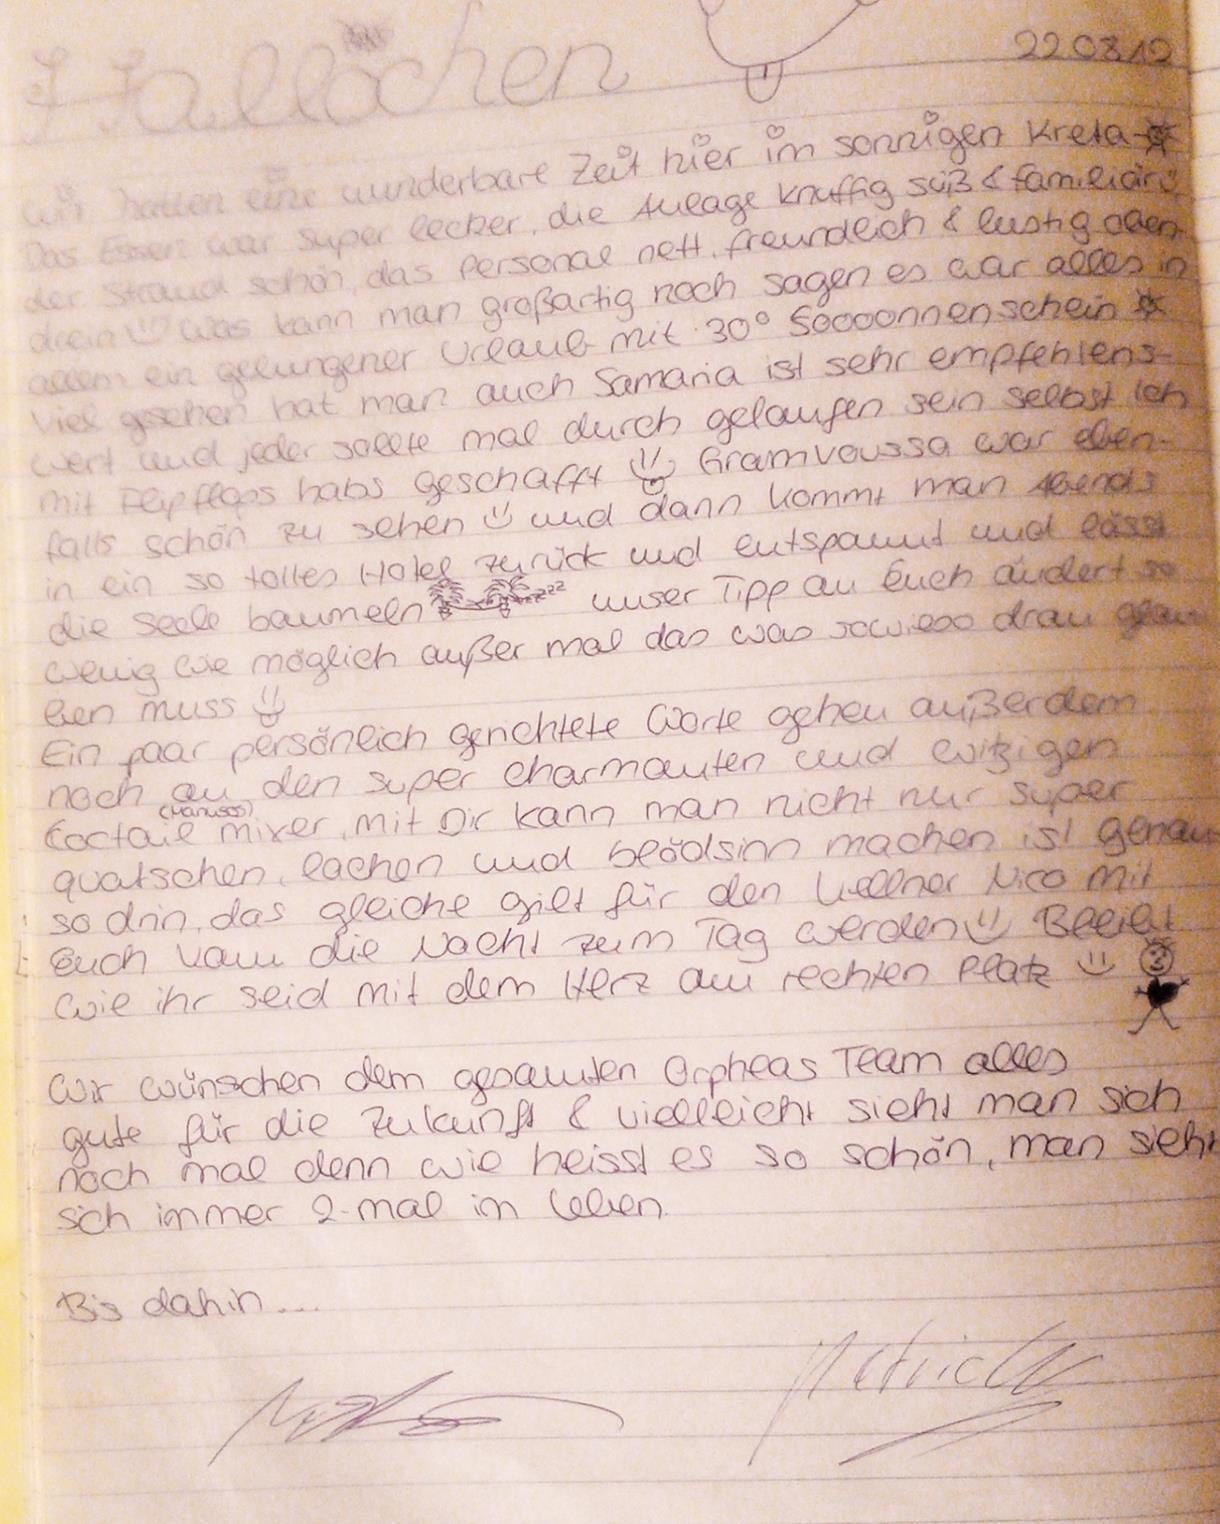 22.08.12
Hallöchen
wir hatten eine wunderbare Zeit hier im sonnigen Kreta
Das Essen war super lecker, die Anlage knuffig süß & familiär
der Strand schön, das Personal nett, freundlich & lustig oben
drein was kann man großartig noch sagen es war alles in
allem ein gelungener Urlaub mit 30° Sooooonnenschein
Viel gesehen hat man auch Samaria ist sehr empfehlens-
wert und jeder sollte mal durch gelaufen sein selbst ich
mit Flipflops habs geschafft Gramvoussa war eben-
falls schön zu sehen und dann kommt man Abends
in ein so tolles Hotel zurück und entspannt und lässt
die Seele baumeln zzzz unser Tipp an Euch ändert so
wenig wie möglich außer mal das was sowieso dran glau
ben muss
Ein paar persönlich gerichtete Worte gehen außerdem
noch an den super charmanten und witzigen
(Manusos)
Coctail mixer, mit Dir kann man nicht nur super
quatschen, lachen und blödsinn machen ist genau
so drin, das gleiche gilt für den Kellner Nico mit
Euch kann die Nacht zum Tag werden Bleibt
wie ihr seid mit dem Herz am rechten Platz
Wir wünschen dem gesamten Orpheas Team alles
gute für die Zukunft & vielleicht sieht man sich
noch mal denn wie heisst es so schön, man sieht
sich immer 2-mal im Leben.
Bis dahin....
Patrick